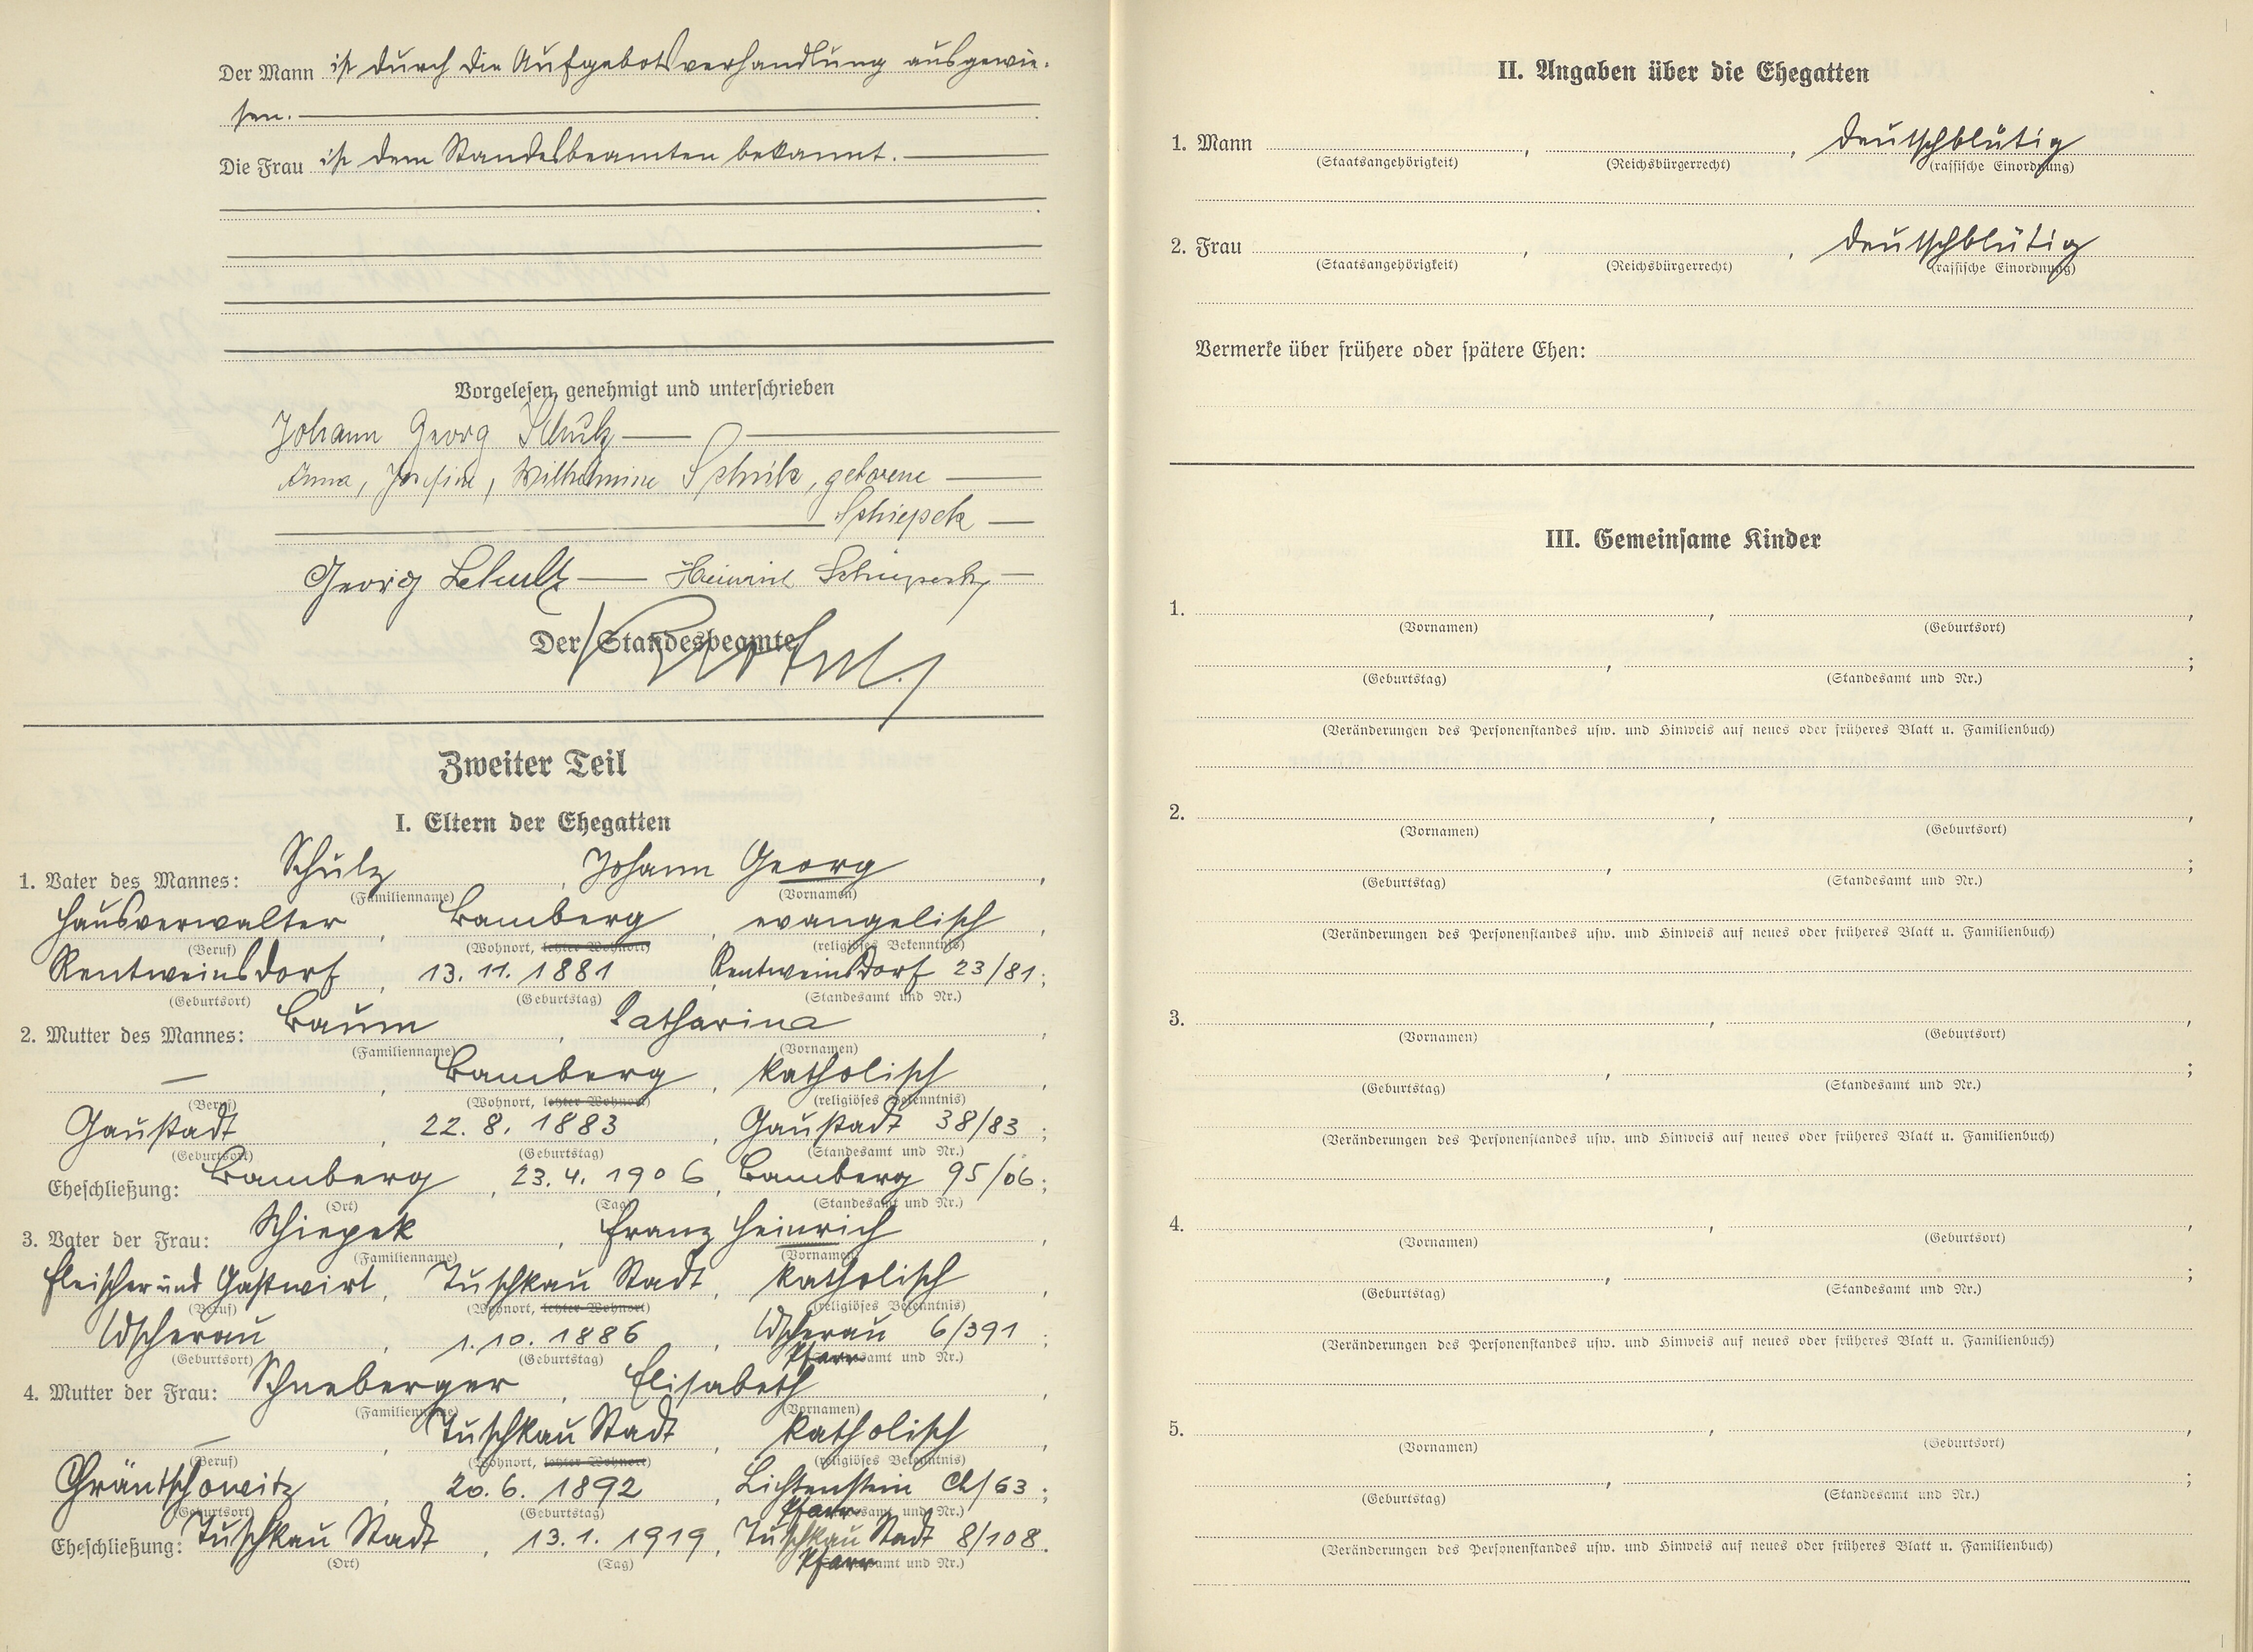 Der Mann ist durch die Aufgebotsverhandlung ausgewie-
sen.
Die Frau ist dem Standesbeamten bekannt.
Vorgelesen, genehmigt und unterschrieben
Johann Georg Schulz
Anna, Josefine, Wilhelmine Schulz, geborene
Schiepek
Georg Schulz Heinrich Schiepek
Der Standesbeamte
Zweiter Teil
I. Eltern der Ehegatten
1. Vater des Mannes: Schulz, Johann Georg,
(Familienname) (Vornamen)
Hausverwalter, Bamberg, evangelisch,
(Beruf) (Wohnort, letzter Wohnort) (religiöses Bekenntnis)
Rentweinsdorf, 13. 11. 1881, Rentweinsdorf 23/81;
(Geburtsort) (Geburtstag) (Standesamt und Nr.)
2. Mutter des Mannes: Baum, Katharina,
(Familienname) (Vornamen)
—, Bamberg, katholisch,
(Beruf) (Wohnort, letzter Wohnort) (religiöses Bekenntnis)
Gaustadt, 22. 8. 1883, Gaustadt 38/83;
(Geburtsort) (Geburtstag) (Standesamt und Nr.)
Eheschließung: Bamberg, 23. 4. 1906, Bamberg 95/06;
(Ort) (Tag) (Standesamt und Nr.)
3. Vater der Frau: Schiepek, Franz Heinrich,
(Familienname) (Vornamen)
Fleischer und Gastwirt, Tuschkau Stadt, katholisch,
(Beruf) (Wohnort, letzter Wohnort) (religiöses Bekenntnis)
Wscherau, 1. 10. 1886, Wscherau 6/391;
(Geburtsort) (Geburtstag) Pfarramt und Nr.)
4. Mutter der Frau: Schneberger, Elisabeth,
(Familienname) (Vornamen)
—, Tuschkau Stadt, katholisch,
(Beruf) (Wohnort, letzter Wohnort) (religiöses Bekenntnis)
20. 6. 1892, Lichtenstein 63;
(Geburtsort) (Geburtstag) Pfarramt und Nr.)
Eheschließung: Tuschkau Stadt, 13. 1. 1919, Tuschkau Stadt 8/108.
(Ort) (Tag) Pfarramt und Nr.)
II. Angaben über die Ehegatten
1. Mann , , deutschblütig
(Staatsangehörigkeit) (Reichsbürgerrecht) (rassische Einordnung)
2. Frau , , deutschblütig
(Staatsangehörigkeit) (Reichsbürgerrecht) (rassische Einordnung)
Vermerke über frühere oder spätere Ehen:
III. Gemeinsame Kinder
1. , ,
(Vornamen) (Geburtsort)
, ;
(Geburtstag) (Standesamt und Nr.)
(Veränderungen des Personenstandes usw. und Hinweis auf neues oder früheres Blatt u. Familienbuch)
2. , ,
(Vornamen) (Geburtsort)
, ;
(Geburtstag) (Standesamt und Nr.)
(Veränderungen des Personenstandes usw. und Hinweis auf neues oder früheres Blatt u. Familienbuch)
3. , ,
(Vornamen) (Geburtsort)
, ;
(Geburtstag) (Standesamt und Nr.)
(Veränderungen des Personenstandes usw. und Hinweis auf neues oder früheres Blatt u. Familienbuch)
4. , ,
(Vornamen) (Geburtsort)
, ;
(Geburtstag) (Standesamt und Nr.)
(Veränderungen des Personenstandes usw. und Hinweis auf neues oder früheres Blatt u. Familienbuch)
5. , ,
(Vornamen) (Geburtsort)
, ;
(Geburtstag) (Standesamt und Nr.)
(Veränderungen des Personenstandes usw. und Hinweis auf neues oder früheres Blatt u. Familienbuch)